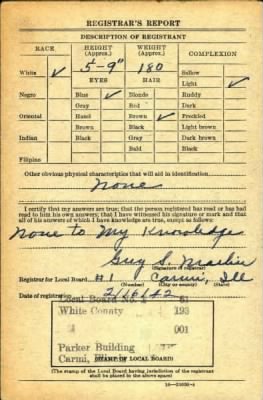 REGISTRAR'S REPORT
DESCRIPTION OF REGISTRANT
RACE HEIGHT (Approx.) WEIGHT (Approx.) COMPLEXION
White ✓ 5-9" 180 Sallow
EYES HAIR Light ✓
Negro Blue ✓ Blonde Ruddy
Gray Red Dark
Oriental Hazel Brown ✓ Freckled
Brown Black Light brown
Indian Black Gray Dark brown
Bald Black
Filipino
Other obvious physical characteristics that will aid in identification
None
I certify that my answers are true; that the person registered has read or has had
read to him his own answers; that I have witnessed his signature or mark and that
all of his answers of which I have knowledge are true, except as follows:
None to My Knowledge
Guy S.
(Signature of registrar)
Registrar for Local Board #1 Carmi, Ill
(Number) (City or county) (State)
Date of registration 2/16/42
Local Board No. 1 61
White County 193
001
Parker Building
Carmi, Illinois
(STAMP OF LOCAL BOARD)
(The stamp of the Local Board having jurisdiction of the registrant
shall be placed in the above space)